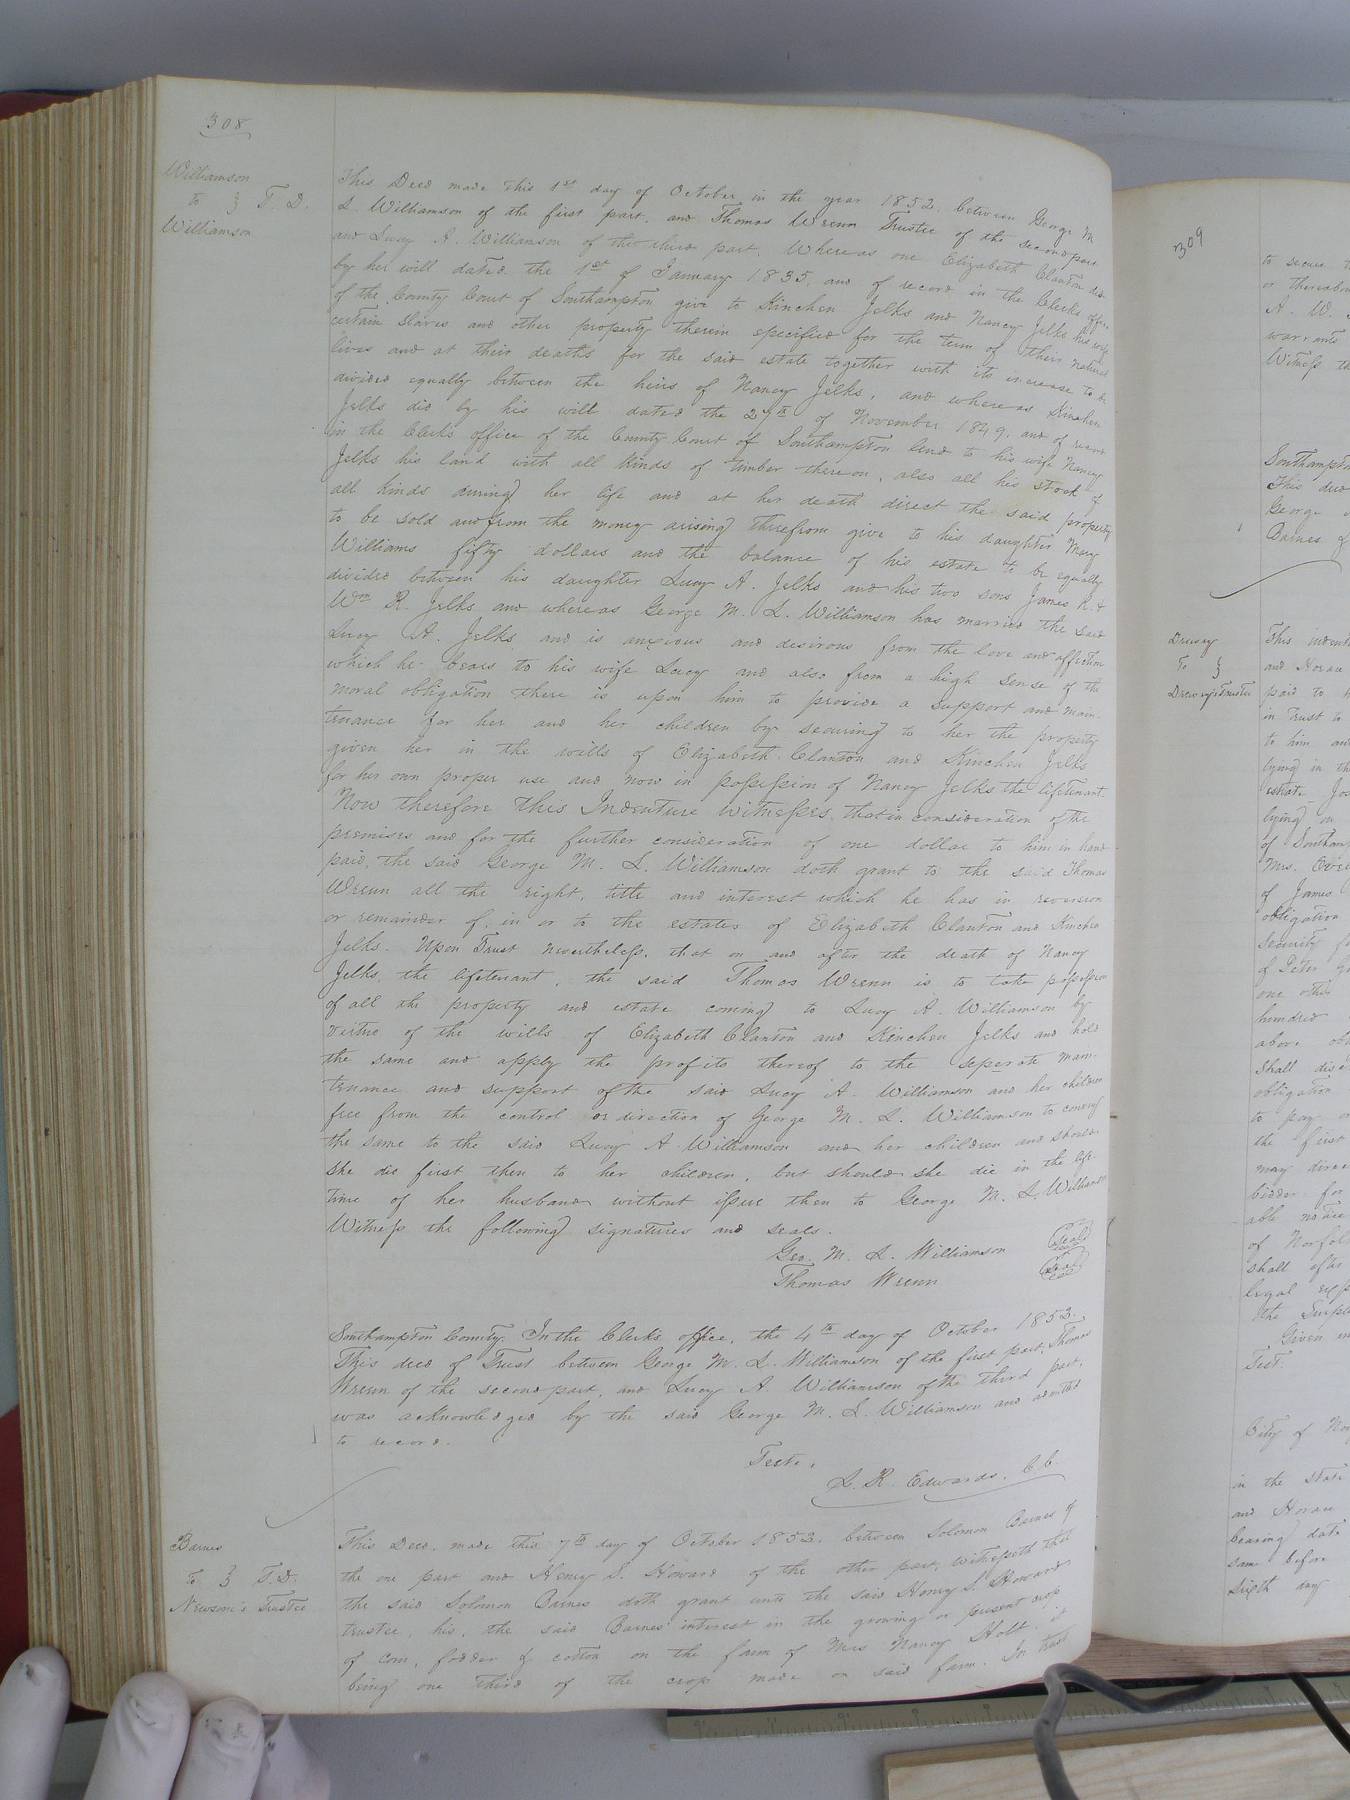 308
Williamson
to } T. D.
Williamson
This Deed made this 1st day of October in the year 1852. between George M
L. Williamson of the first part, and Thomas Wrenn Trustee of the second part
and Lucy A. Williamson of the third part. Whereas one Elizabeth Clanton did
by her will dated the 1st of January 1835, and of record in the Clerks office
of the County Court of Southampton give to Kinchen Jelks and Nancy Jelks his wife
certain slaves and other property therein specified for the term of their natural
lives and at their deaths for the said estate together with its increase to be
divided equally between the heirs of Nancy Jelks, and whereas Kinchen
Jelks did by his will dated the 27th of November 1849, and of record
in the Clerk's office of the County Court of Southampton lend to his wife Nancy
Jelks his land with all kinds of timber thereon, also all his stock of
all kinds during her life and at her death direct the said property
to be sold and from the money arising therefrom give to his daughter Mary
Williams fifty dollars and the balance of his estate to be equally
divided between his daughter Lucy A. Jelks and his two sons James R. &
Wm R. Jelks and whereas George M. L. Williamson has married the said
Lucy A. Jelks and is anxious and desirous from the love and affection
which he bears to his wife Lucy and also from a high sense of the
moral obligation there is upon him to provide a support and main-
tenance for her and her children by securing to her the property
given her in the wills of Elizabeth Clanton and Kinchen Jelks
for her own proper use and now in possession of Nancy Jelks the lifetenant.
Now therefore this Indenture Witnesses, that in consideration of the
premises and for the further consideration of one dollar to him in hand
paid, the said George M. L. Williamson doth grant to the said Thomas
Wrenn all the right, title and interest which he has in reversion
or remainder of, in or to the estates of Elizabeth Clanton and Kinchen
Jelks. Upon Trust nevertheless, that on and after the death of Nancy
Jelks the lifetenant, the said Thomas Wrenn is to take possession
of all the property and estate coming to Lucy A. Williamson by
virtue of the wills of Elizabeth Clanton and Kinchen Jelks and hold
the same and apply the profits thereof to the seperate main-
tenance and support of the said Lucy A. Williamson and her children
free from the control or direction of George M. L. Williamson to convey
the same to the said Lucy A Williamson and her children and should
she die first then to her children, but should she die in the life-
time of her husband without issue then to George M. L. Williamson
Witness the following signatures and seals.
Geo. M. L. Williamson seal
Thomas Wrenn seal
Southampton County. In the Clerk's office, the 4th day of October 1852.
This deed of Trust between George M. L. Williamson of the first part, Thomas
Wrenn of the second part, and Lucy A. Williamson of the third part,
was acknowledged by the said George M. L. Williamson and admitted
to record.
Teste.
L. R. Edwards. C. C.
Barnes
to } T. D.
Newsom's Trustee
This Deed, made this 7th day of October 1852. between Solomon Barnes of
the one part and Henry S. Howard of the other part, witnesseth that
the said Solomon Barnes doth grant unto the said Henry S. Howard
trustee, his, the said Barnes' interest in the growing or present crop
of corn, fodder & cotton on the farm of Mrs Nancy Holt. it
being one third of the crop made on said farm. In trust
309
to secure
or thereabou
A. W.
warrants
Witness th
Southampton
This deed
George
Barnes of
Drewry
to }
Drewry's Trustee
This indent
and Horace
paid to
in trust to
to him and
lying in th
estate
lying on
of Southam
Mrs.
of James
obligation
security
of Peter
one other
hundred
above obl
shall
obligation
to pay
the first
may direc
bidder for
able notice
of Norfolk
shall after
legal
the surpl
Given
Test.
City of Nor
in the State
and Horace
bearing date
same before
sixth day